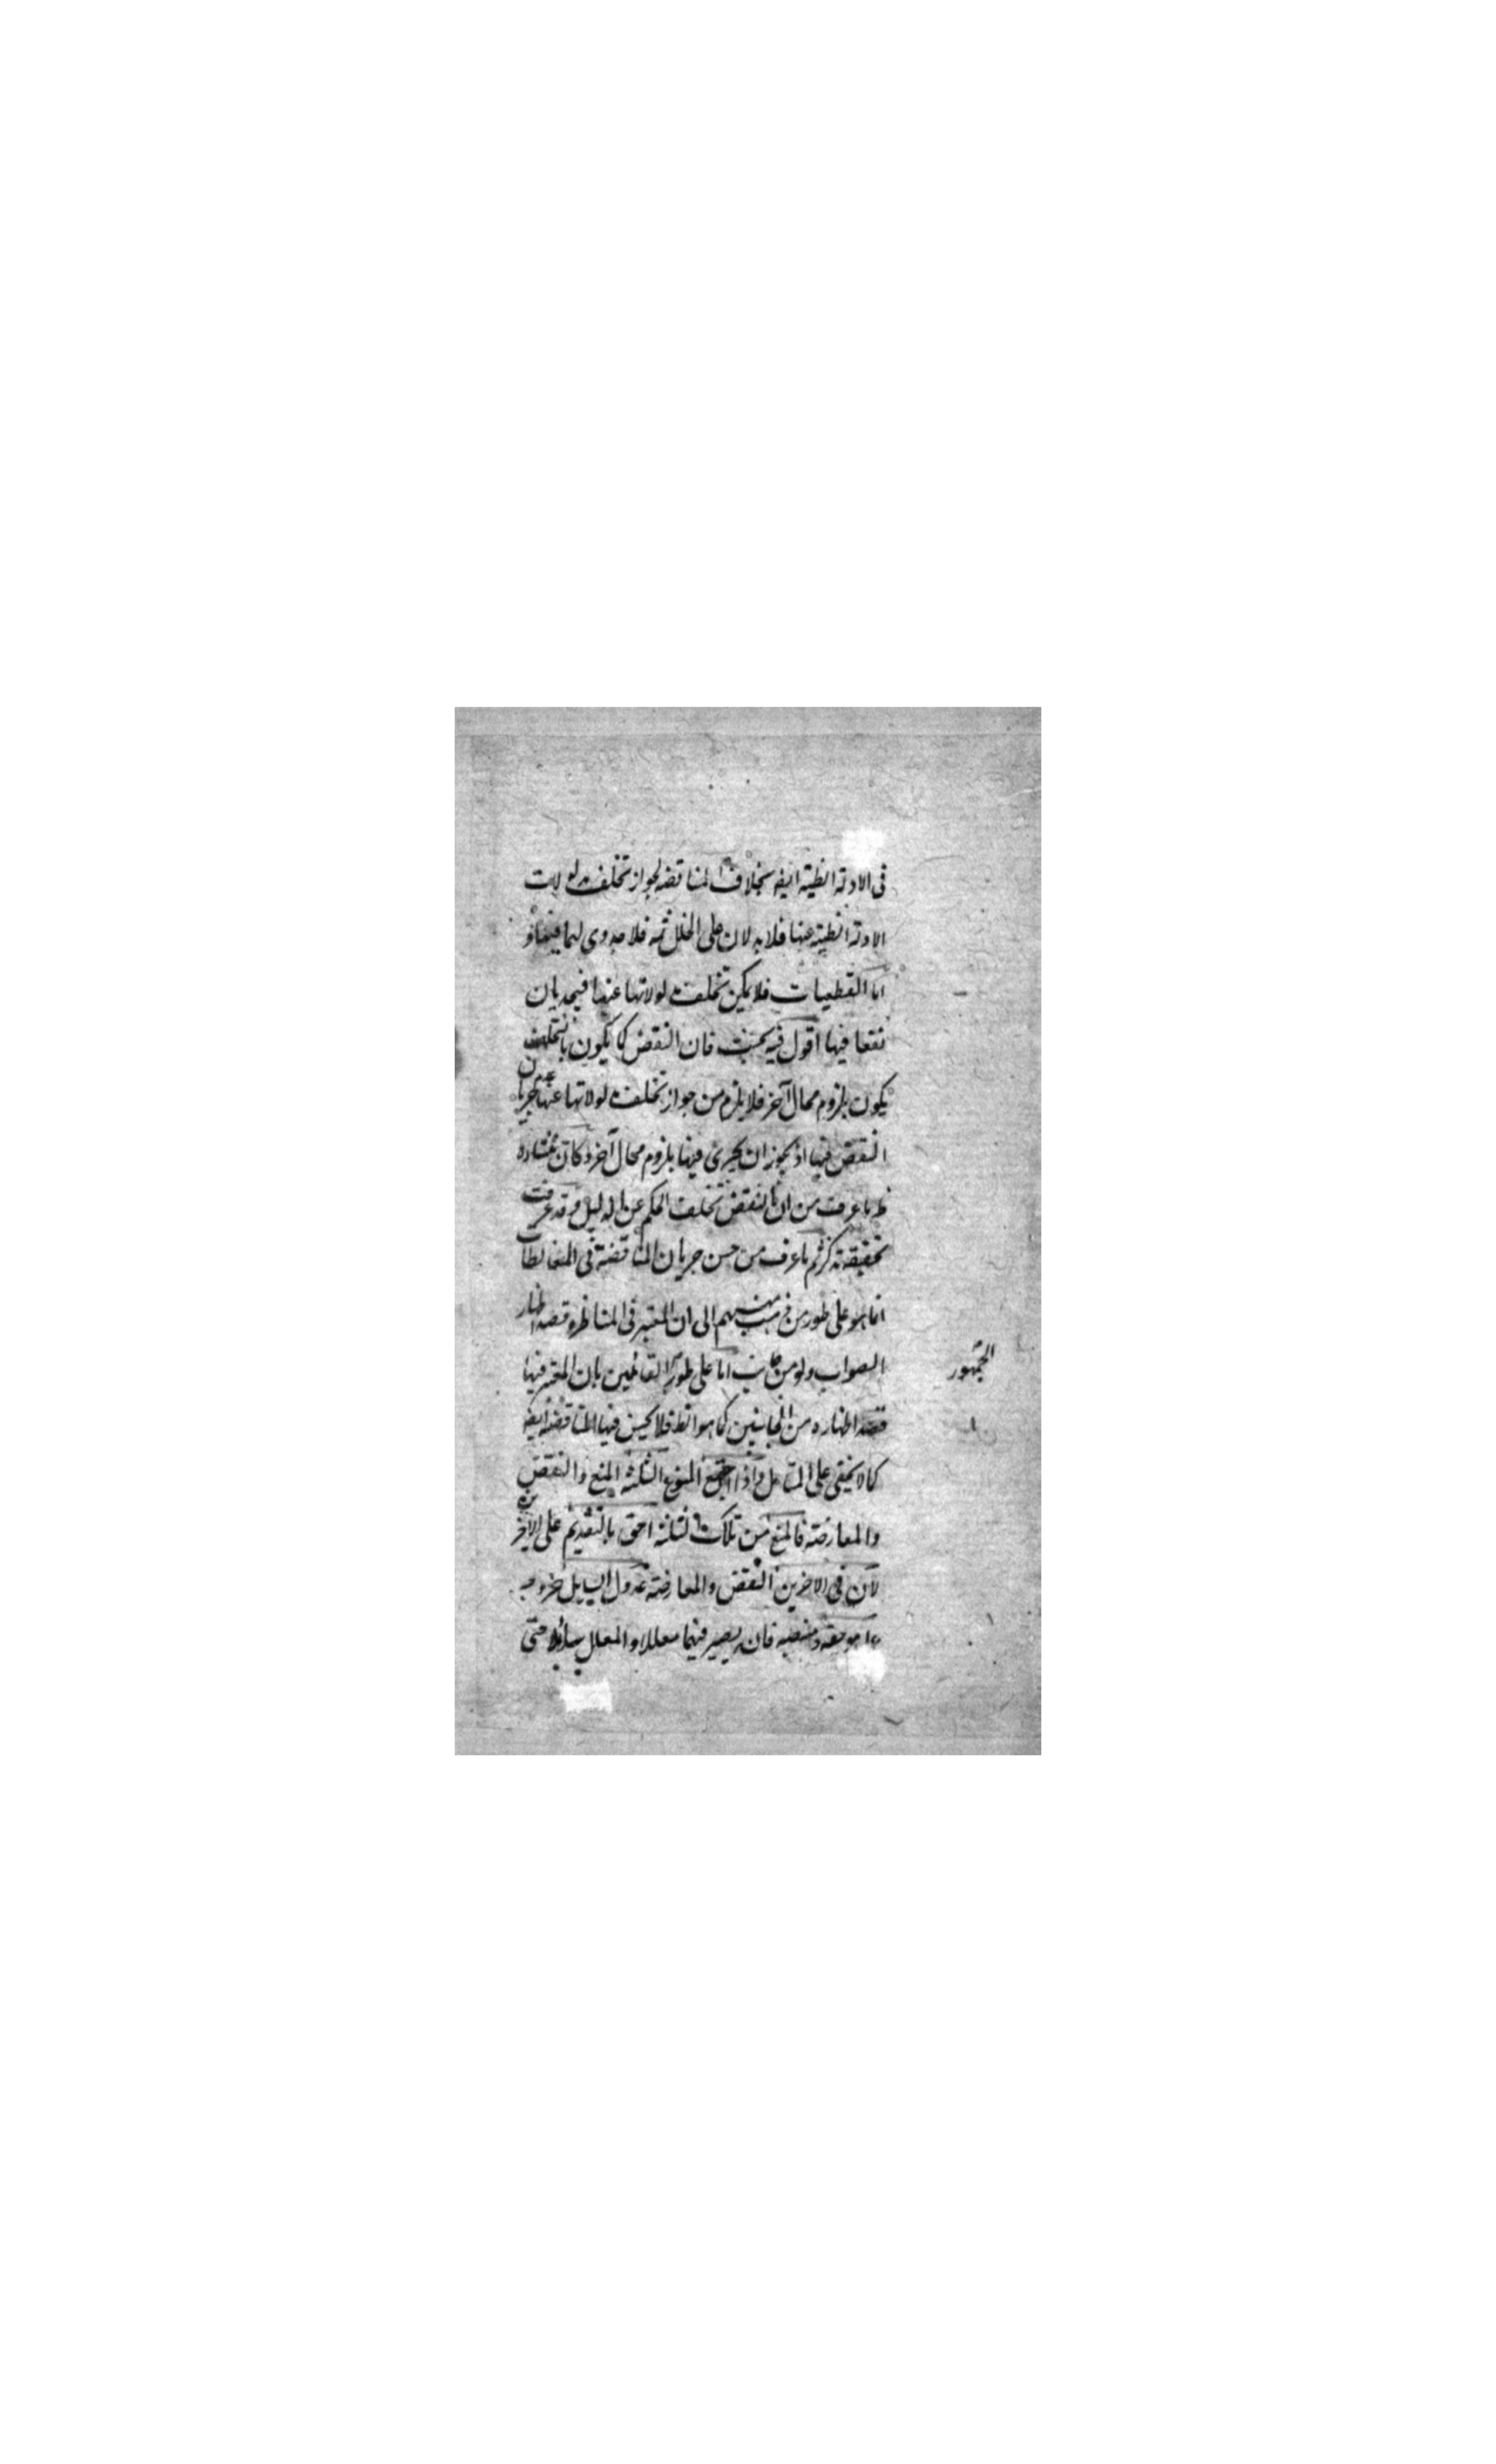 فى الادلة الظنية ايضا بخلاف المناقضة لجواز تخلف مدلولات
الادلة الظنية عنها فلا يدلان على الخلل ثمه فلا جدوى لهما فيها و
اما القطعيات فلا يمكن تخلف مدلولاتها عنها فيجديان
نفعا فيها اقول فيه بحث فان النقض كما يكون بالتخلف
يكون بلزوم محال آخر فلا يلزم من جواز تخلف مدلولاتها عنها عدم جريان
النقض فيها اذ يجوز ان يجرى فيها بلزوم محال آخر وكان منشاءه
ما عرفت من ان النقض تخلف الحكم عن الدليل وقد عرفت
تحقيقه تذكر ثم ما عرف من حسن جريان المناقضة فى المغالطات
انما هو على طور من ذهب منهم الى ان المعتبر فى المناظرة قصد اظهار
الصواب ولو من جانب اما على طور القائلين بان المعتبر فيها
الجمهور
قصد اظهاره من الجانبين كما هو الظ فلا يحسن فيها المناقضة ايضا
كما لا يخفى على المتأمل واذا اجتمع المنوع الثلثة المنع والنقض
والمعارضة فالمنع من تلك الثلثة احق بالتقديم على الاخيرين
لان فى الاخرين النقض والمعارضة عدول السايل
عما هو حقه ومنصبه فانه يصير فيهما معللا والمعلل سائلا حتى